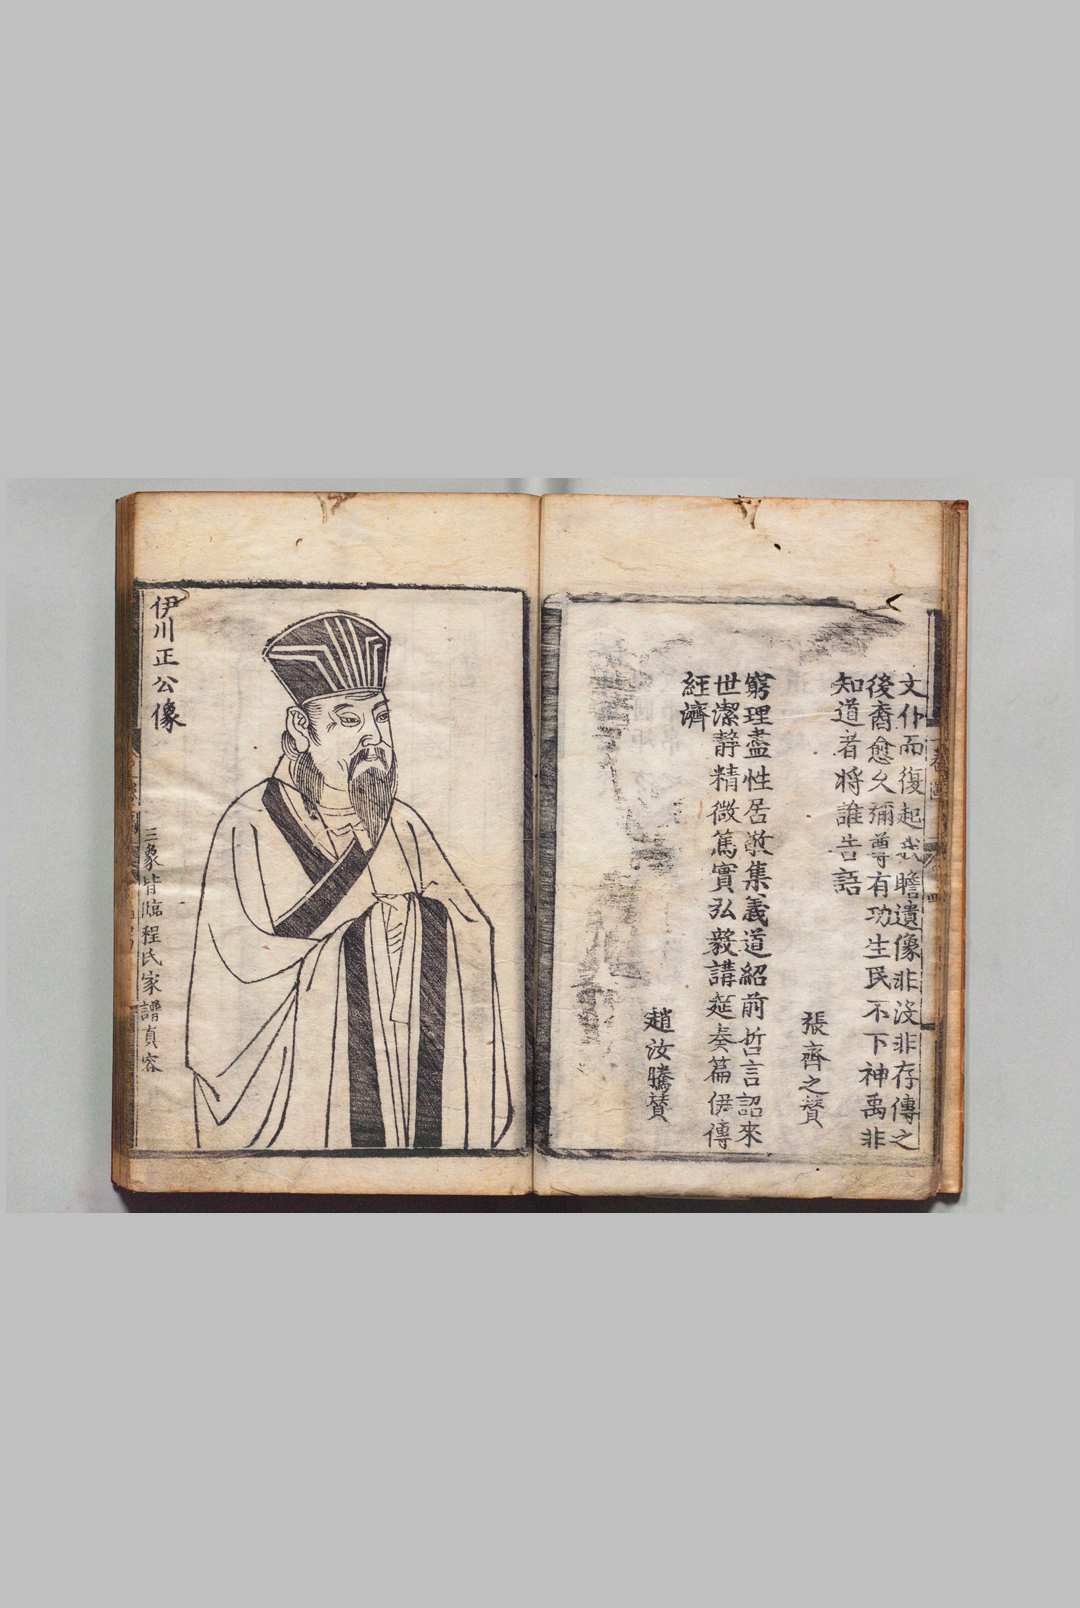 文仆而復起我瞻遺像非沒非存傳之
後裔愈久彌尊有功生民不下神禹非
知道者將誰告語
張齊之賛
窮理盡性居敬集義道紹前哲言詔來
世潔靜精微篤實弘毅講筵奏篇伊傳
經濟
趙汝騰賛
伊川正公像
三象皆臨程氏家譜真容